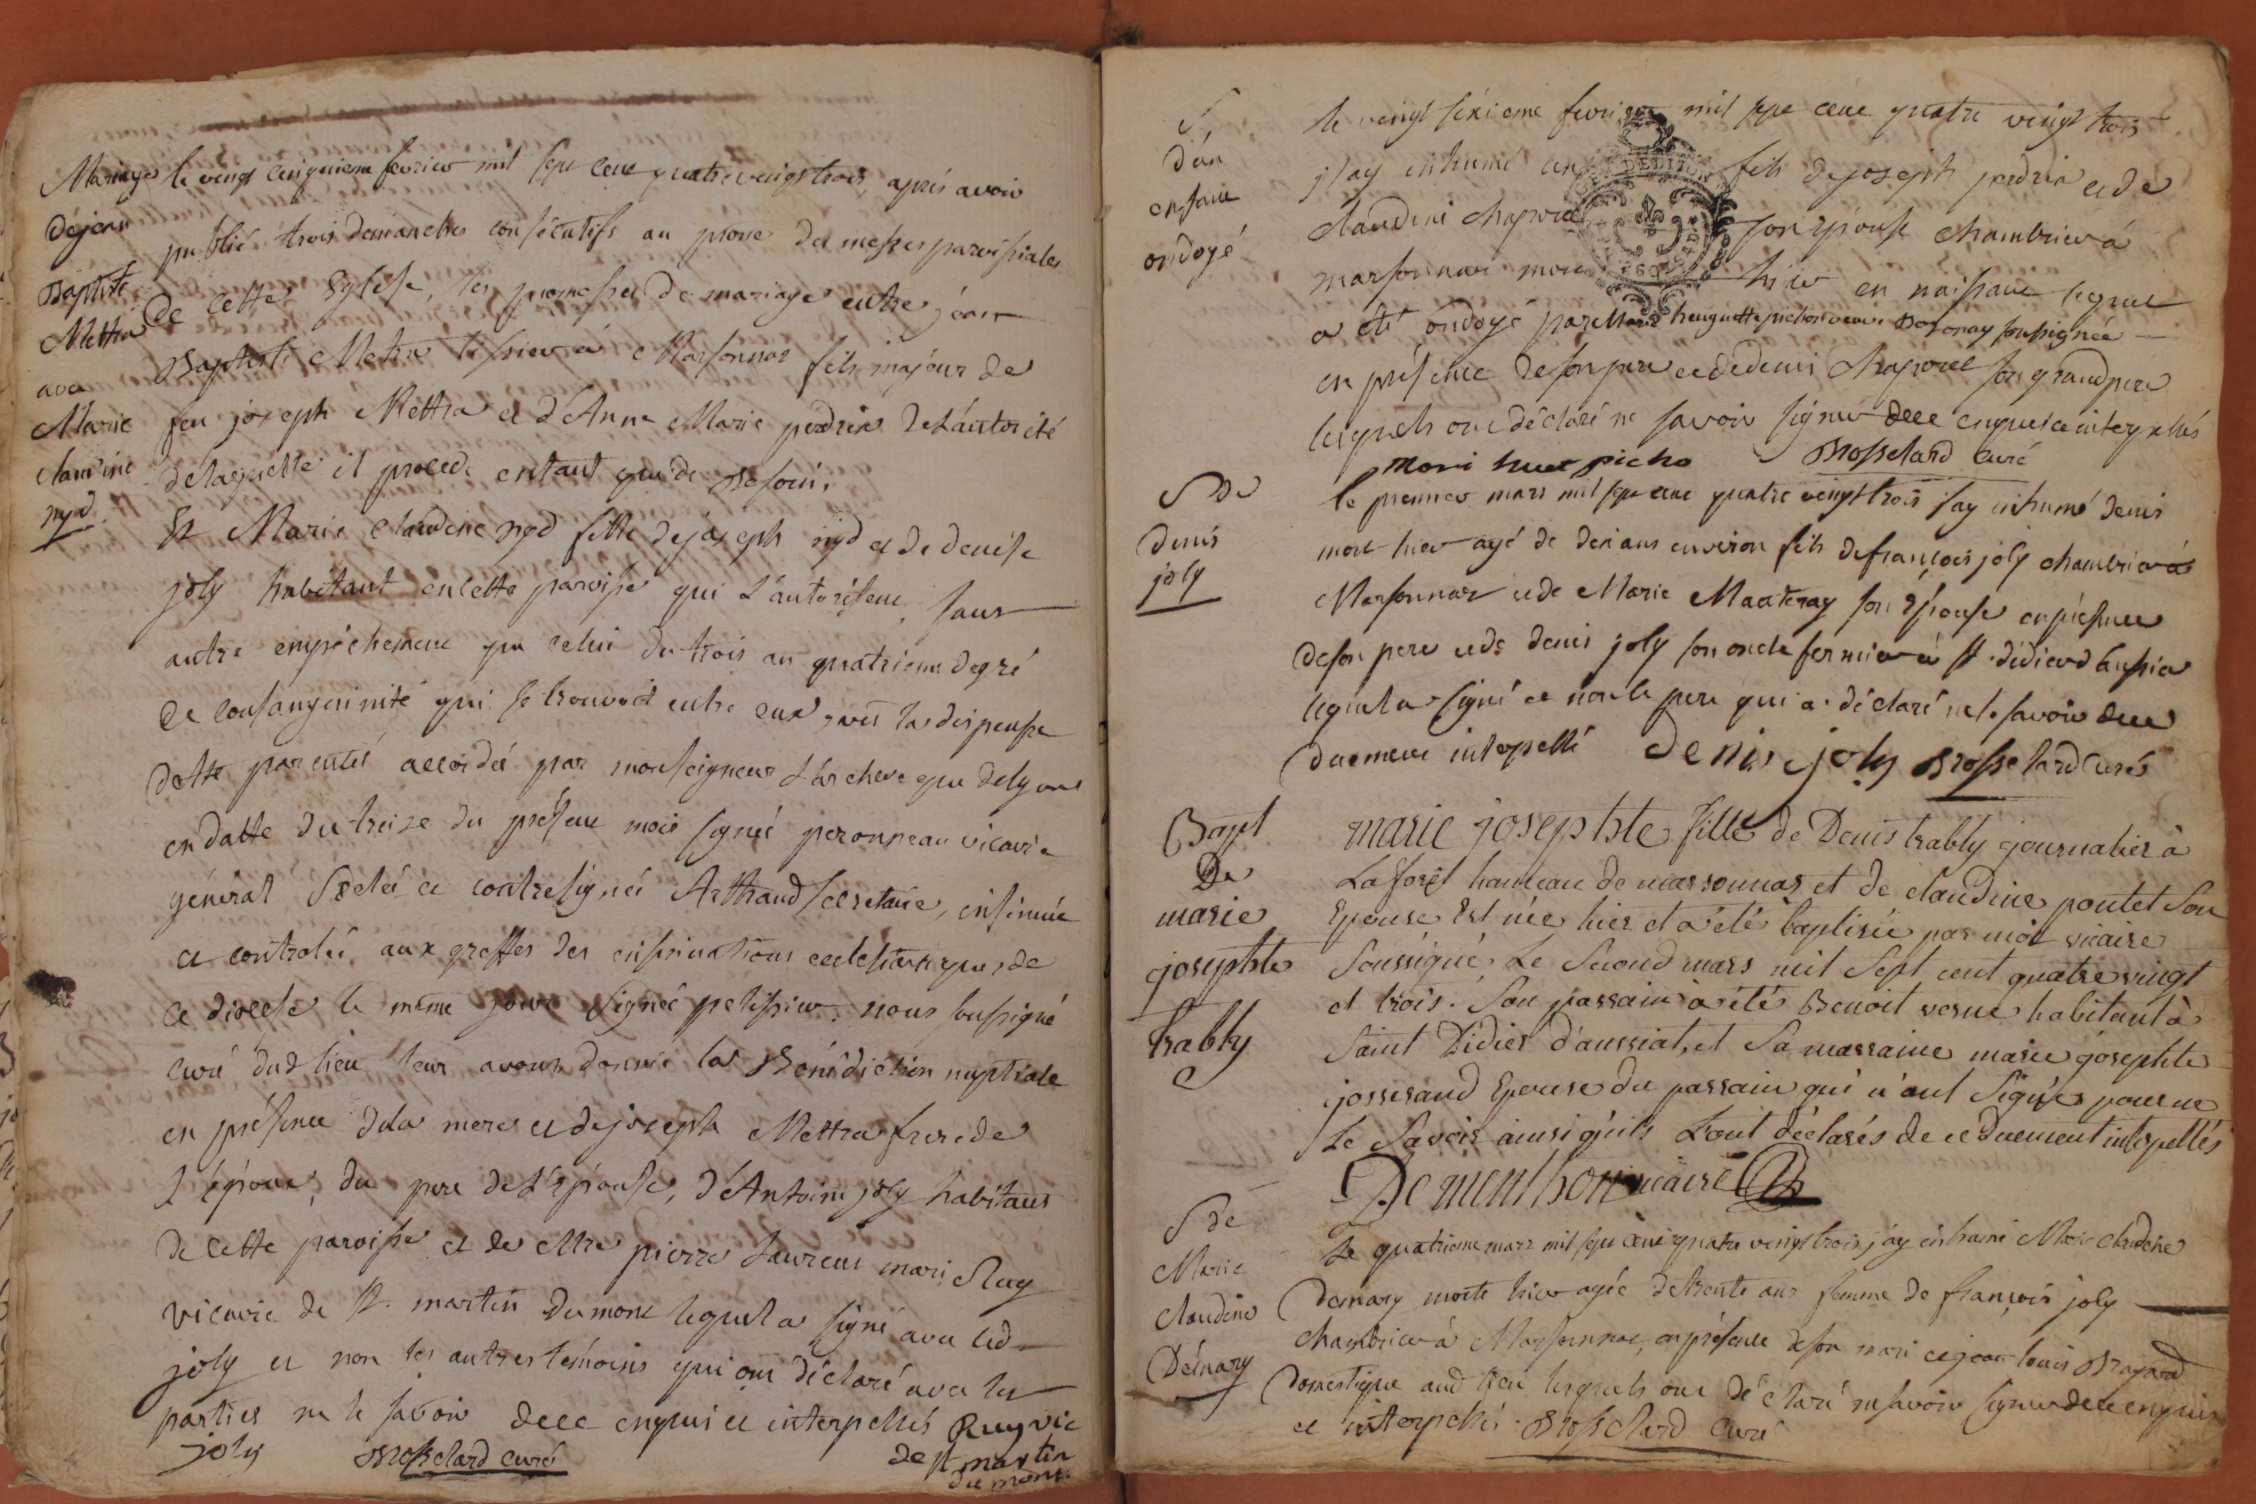 Mariage
déjean
Baptiste
Mettra
avec
Marie
claudine
nyd.
le vengt cinquieme fevrier mil sept cent quatrevengt trois, aprés avoir
publié trois demanches consécutifs au prone des messes paroissiales
de cette Eglise, les promesses de mariage entre jéan
Baptiste Metra tissier à Marsonnas fils majeur de
feu joseph Mettra et d'Anne Marie perdrix de l'autorité
de laquelle il procede entant que de Besoin.
Et Marie claudine nyd fille de joseph nyd et de denise
joly habitant en cette paroisse qui l'autorisent, sans
autre empéchement que celui du trois au quatrieme degré
de consangeninité qui se trouvoit entre eux, vû la dispense
parentée accordée par monseigneur l'archeveque de lyon
en datte du treize du présent mois signée peronneau vicaire
général Scelée et contresignée Arthaud secretaire, insinuée
et controlée aux greffes des insinuations ecclesiastiques de
ce diocese le même jour signée pelissier. nous soussigné
curé dud lieu leur avons donné la Bénédiction nuptiale
en présence de la mere et de joseph Mettra frere de
l'époux, du pere de l'épouse, d'Antoine joly habitans
de cette paroisse et de Mre pierre Laurent mari Ruy
vicaire de St. martin du mont lequel a signé avec led
joly et non les autres témoins qui ont déclaré avec les
parties ne le savoir de ce enquis et interpellés Ruy vic
joly Brosselard curé de St martin
du mont.
S,
d'un
enfant
ondoyé
le vengt sixieme fevrier mil sept cent quatre vengt trois
j'ay inhumé un fils de joseph perdrix et de
claudine chapotel son Epouse chambrier à
marsonnas mort hier en naissant lequel
a été ondoyé par Marie huuguette pichon veuve soussignée
en présence de son pere et de denis Chapotel son grand pere
lesquels ont déclaré ne savoir signer de ce enquis et interpellés
mari huet picho Brosselard curé
S de
denis
joly
le premier mars mil sept cent quatre vengt trois j'ay inhumé denis
mort hier agé de dix ans environ fils de françois joly chambrier à
Marsonnas et de Marie son Epouse en présence
de son pere et de denis joly son oncle fermier à St. didier d'aussia
lequel a signé et non le pere qui a déclaré ne le savoir de ce
duement interpellé denis joly Brosselard curé
Bapt
De
marie
josephte
trably
marie josephte fille de Denis trably journalier à
La forêt hameau de marsonnas et de claudine poutet Son
Epouse Est née hier et a été baptisée par moi vicaire
Soussigné, Le Second mars mil Sept cent quatre vingt
et trois. Son parrain a été Benoit verne habitant à
Saint Didier d'aussiat, et Sa marraine marie josephte
josserand Epouse du parrain qui n'ont Signés pour ne
Le Savoir ainsi qu'ils L'ont déclarés de ce duement interpellés
De menthon vicaire
S de
Marie
claudine
Dénary
Le quatrieme mars mil sept cent quatre vengt trois j'ay inhumé Marie claudine
Denary morte hier agée de trente ans femme de françois joly
chambrier à Marsonnas, en présence de son mari et jean louis Brayard
domestique aud lieu lesquels ont déclaré ne savoir signer de ce enquis
et interpellés. Brosselard curé